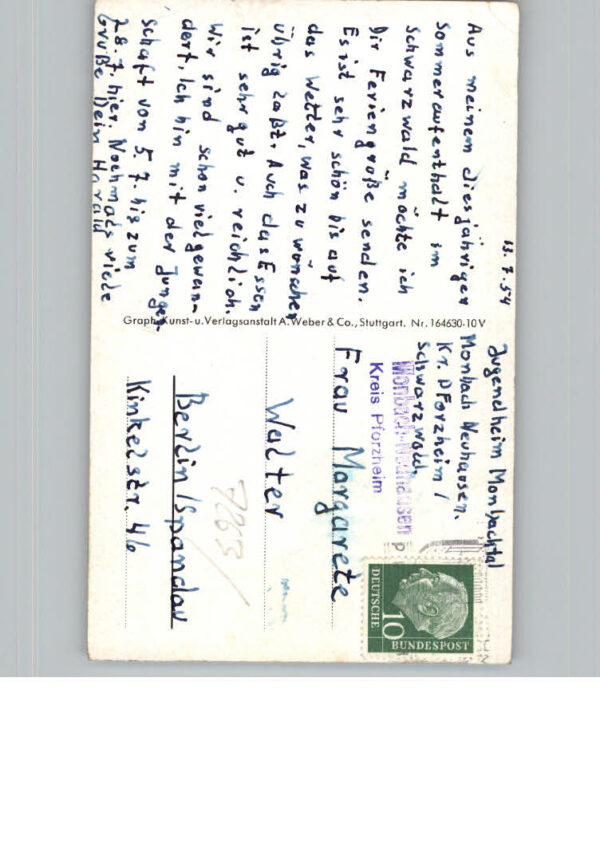 13.7.54
Aus meinem diesjähriger
Sommeraufenthalt im
Schwarzwald möchte ich
Dir Feriengrüße senden.
Es ist sehr schön bis auf
das Wetter, was zu wünschen
übrig läßt. Auch das Essen
ist sehr gut u. reichlich.
Wir sind schon viel gewan-
dert. Ich bin mit der Jungen
schaft vom 5.7. bis zum
28.7. hier. Nochmals viele
Grüße Dein Harald
Graph. Kunst- u. Verlagsanstalt A. Weber & Co., Stuttgart. Nr. 164630-10V
Jugendheim Monbachtal
Monbach Neuhausen.
Kr. Pforzheim /
Schwarzwald
Monbach-Neuhausen
Kreis Pforzheim
Frau Margarete
Walter
Berlin/Spandau
Kinkelstr. 46
7863/
10
DEUTSCHE
BUNDESPOST